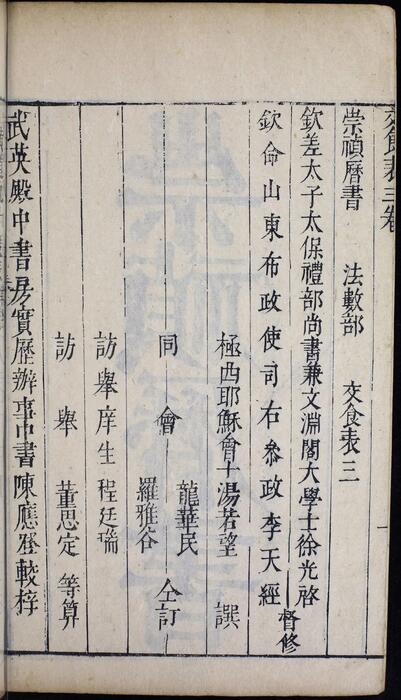 交食表三卷
崇禎曆書 法數部 交食表三
欽差太子太保禮部尚書兼文淵閣大學士徐光啓
欽命山東布政使司右參政李天經 督修
極西耶穌會士湯若望 譔
龍華民
同會 仝訂
羅雅谷
訪舉庠生程廷瑞
訪舉 董思定 等算
武英殿中書房實歷辦事中書陳應登較梓
一